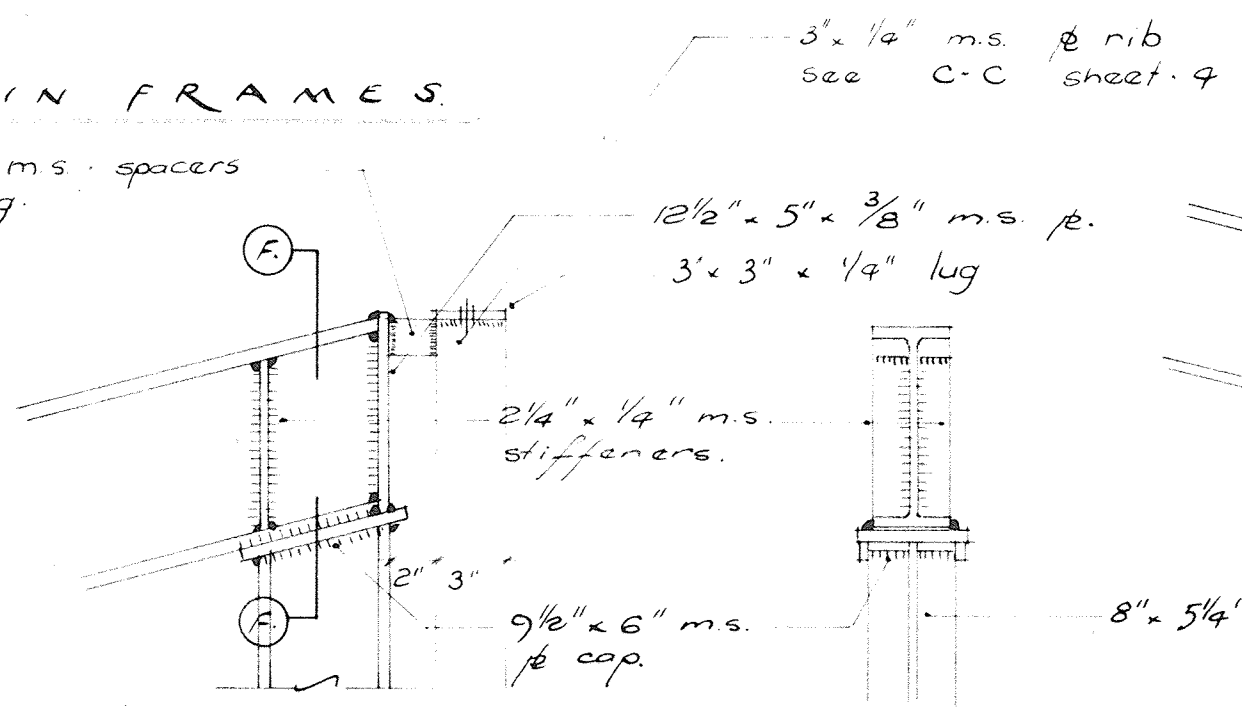 3" x 1/4" m.s. ⅊ rib
see C-C sheet. 4
IN FRAMES.
m.s. spacers
g.
12 1/2" x 5" x 3/8" m.s. ⅊.
3" x 3" x 1/4" lug
F.
2 1/4" x 1/4" m.s.
stiffeners.
2" 3"
F.
9 1/2" x 6" m.s.
⅊ cap.
8" x 5 1/4"